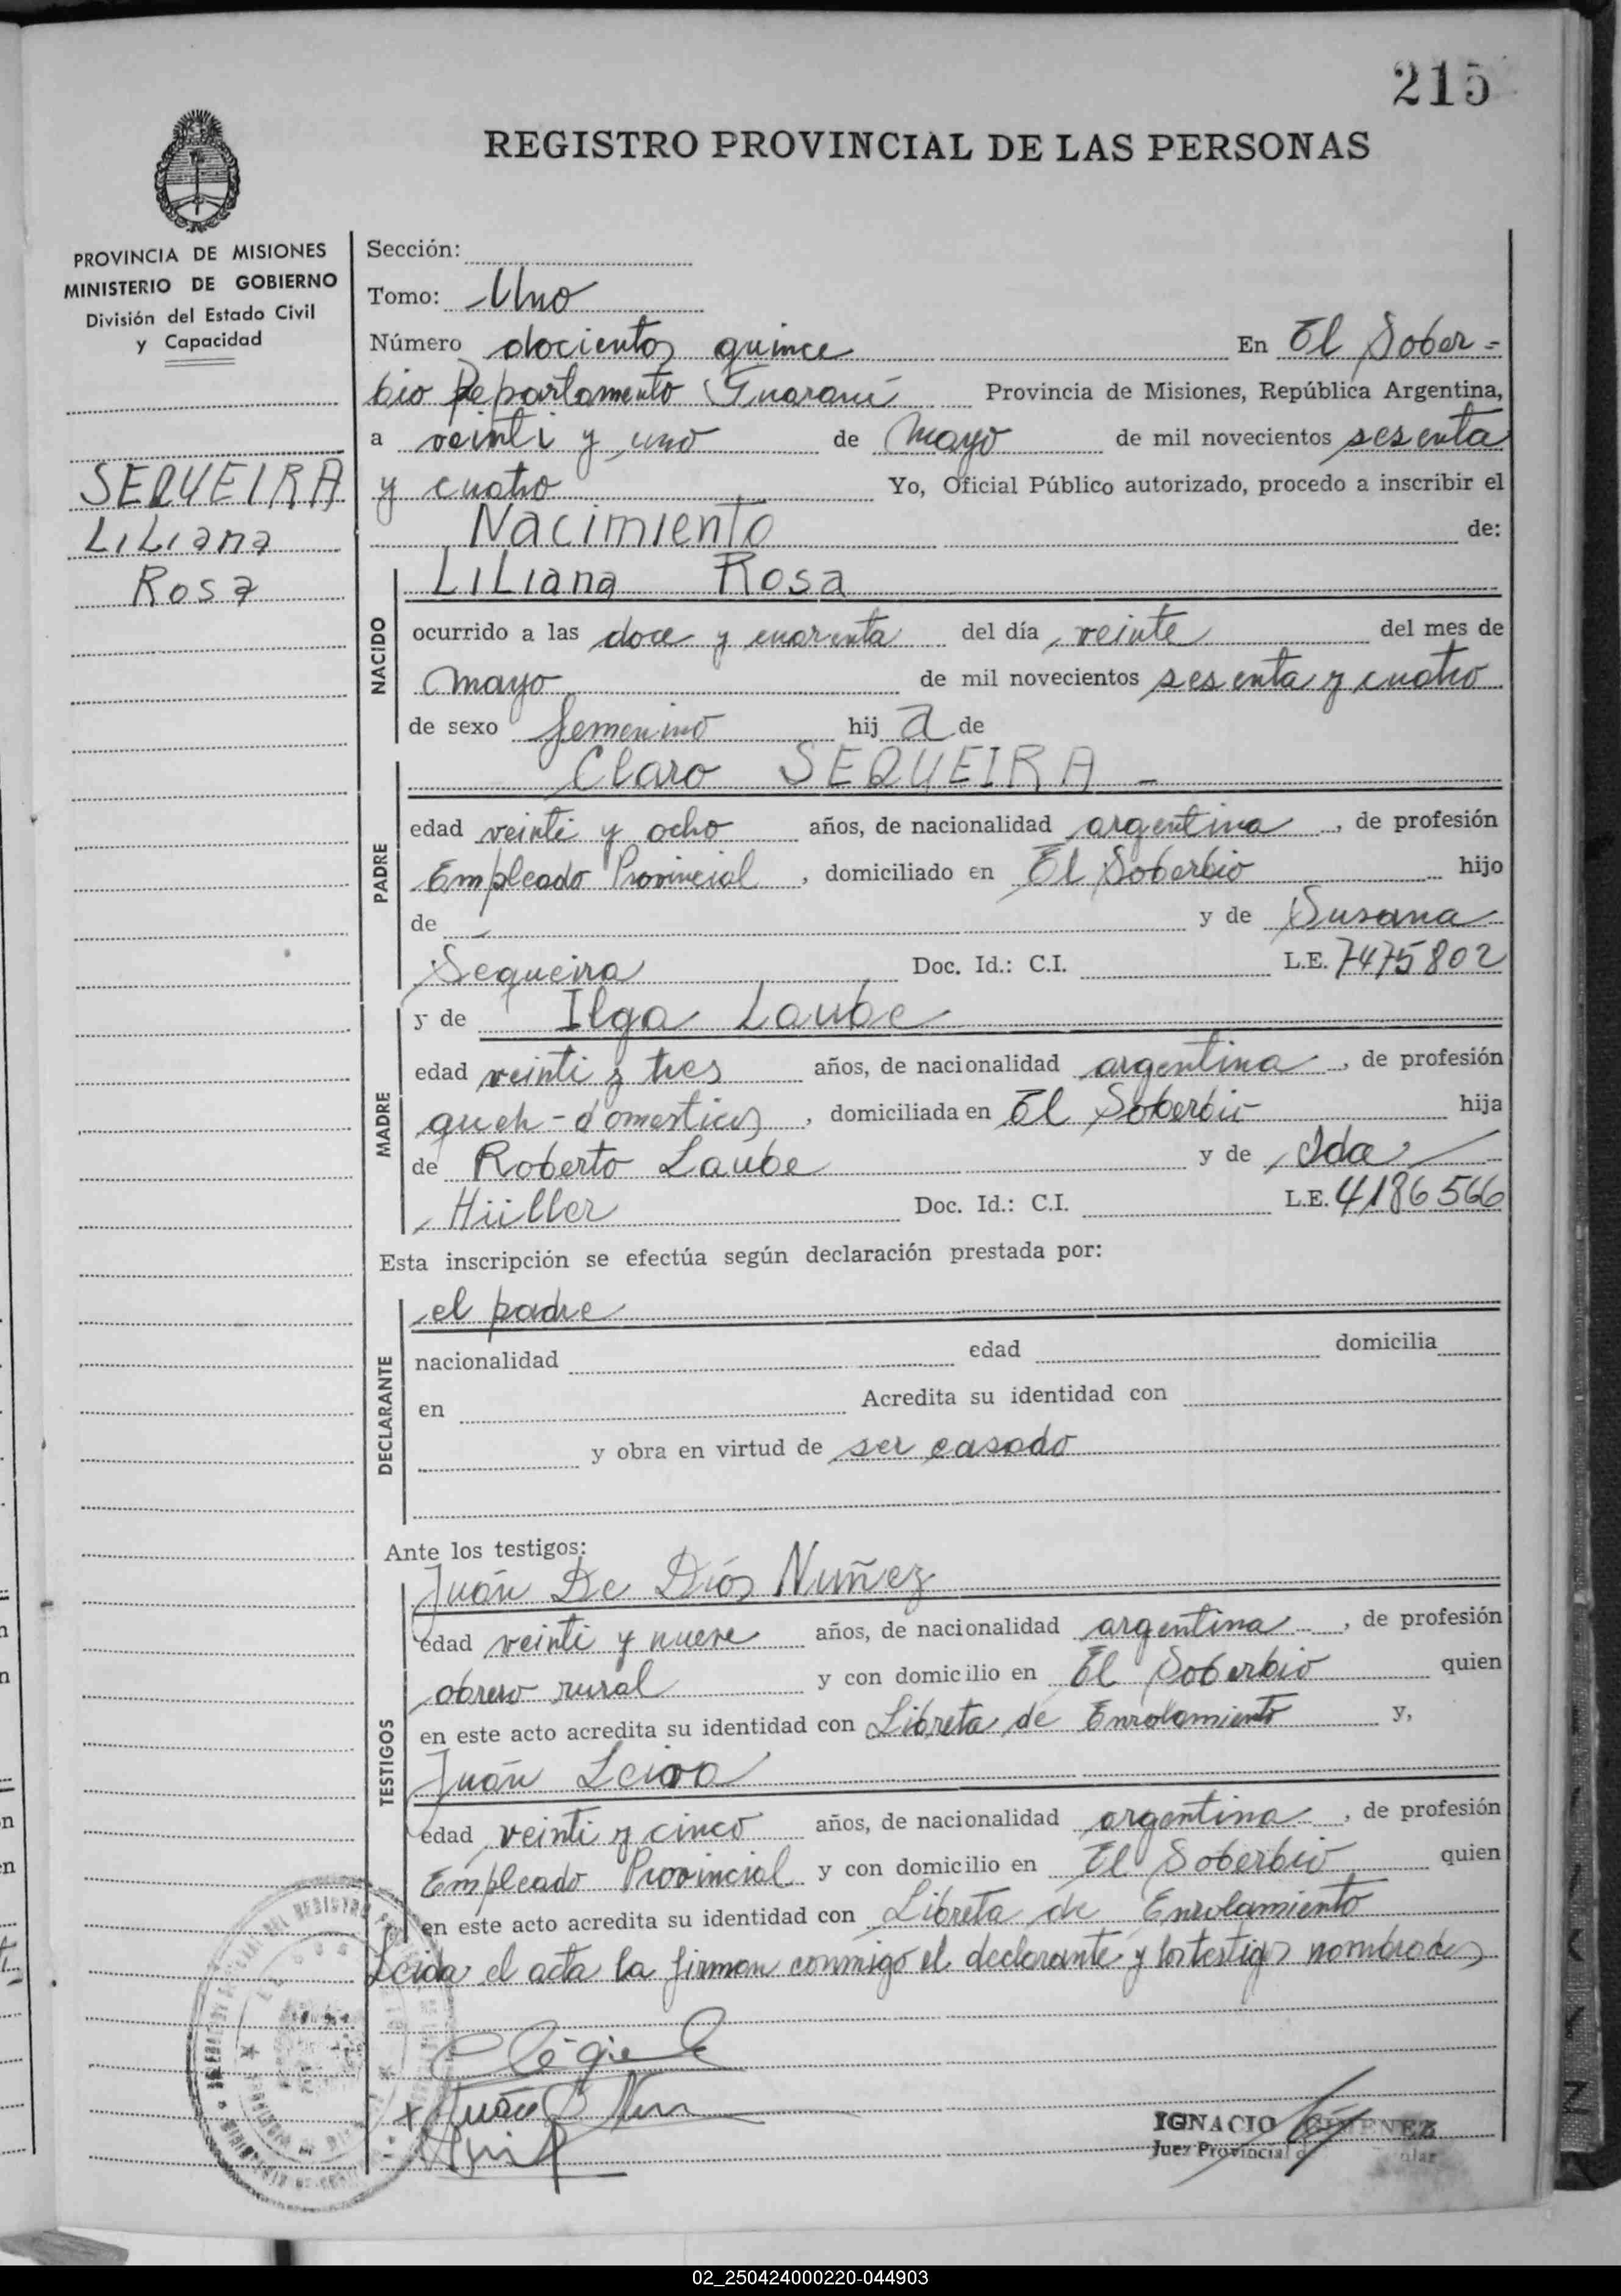 215
REGISTRO PROVINCIAL DE LAS PERSONAS
PROVINCIA DE MISIONES
MINISTERIO DE GOBIERNO
División del Estado Civil
y Capacidad
SEQUEIRA
LiLiana
Rosa
Sección:
Tomo: Uno
Número docientos quince En El Sober=
bio Departamento Guaraní Provincia de Misiones, República Argentina,
a veinti y uno de mayo de mil novecientos sesenta
y cuatro Yo, Oficial Público autorizado, procedo a inscribir el
Nacimiento de:
NACIDO
LiLiana Rosa
ocurrido a las doce y cuarenta del día veinte del mes de
mayo de mil novecientos sesenta y cuatro
de sexo femenino hij a de
PADRE
Claro SEQUEIRA -
edad veinti y ocho años, de nacionalidad argentina, de profesión
Empleado Provincial, domiciliado en El Soberbio hijo
de - y de Susana
Sequeira Doc. Id.: C.I. L.E. 7475802
MADRE
y de Ilga Laube
edad veinti y tres años, de nacionalidad argentina, de profesión
queh-domesticos, domiciliada en El Soberbio hija
de Roberto Laube y de Ida
Hüller Doc. Id.: C.I. L.E. 4186566
Esta inscripción se efectúa según declaración prestada por:
DECLARANTE
el padre
nacionalidad edad domicilia
en Acredita su identidad con
y obra en virtud de ser casado
Ante los testigos:
TESTIGOS
Juán De Diós Nuñez
edad veinti y nueve años, de nacionalidad argentina, de profesión
obrero rural y con domicilio en El Soberbio quien
en este acto acredita su identidad con Libreta de Enrolamiento y,
Juán Leiva
edad veinti y cinco años, de nacionalidad argentina, de profesión
Empleado Provincial y con domicilio en El Soberbio quien
en este acto acredita su identidad con Libreta de Enrolamiento
Leida el acta la firman conmigo el declarante y los testigos nombrados
IGNACIO GIMENEZ
Juez Provincial
02_250424000220-044903